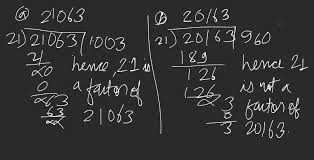 (a) 21063
21) 21063 ( 1003
21
00
0
063
63
xx
hence, 21 is
a factor of
21063
(b) 20163
21) 20163 ( 960
189
126
126
3
0
3
hence 21
is not a
factor of
20163.